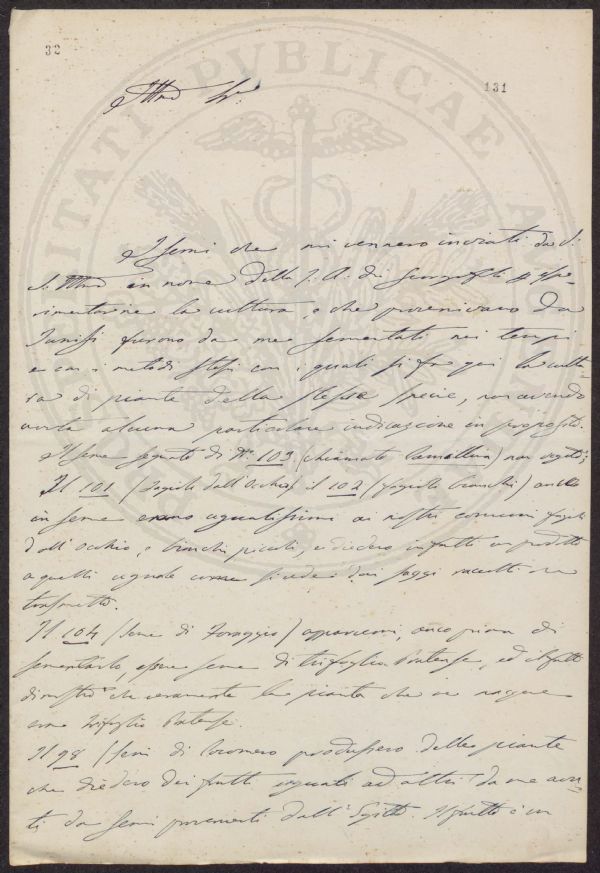 32
131
Illmo Sigr
I semi che mi vennero inviati da S:
S. Illma in nome della I. A. dei Georgofili per spe-
rimentarne la cultura, e che provenivano da
Tunisi furono da me sementati nei tempi
e con i metodi stessi con i quali si fa qui la cultu-
ra di piante della stessa specie, non avendo
avuta alcuna particolare indicazione in proposito.
Il seme segnato di No. 103 (chiamato ) non vegetò;
Il 101 (Fagioli dall'occhio) il 102 (Fagiolo bianchi) anco
in seme erano ugualissimi ai nostri comuni fagioli
dall'occhio, e bianchi piccoli, e diedero infatti un prodotto
a quelli uguale come si vede dai saggi raccolti che
trasmetto.
Il 104 (seme di Foraggio) apparvemi, anco prima di
sementarlo, essere seme di trifoglio Pratense, ed infatti
dimostrò che veramente la pianta che ne nacque
era Trifoglio Pratense.
Il 98 (semi di Cocomero produssero delle piante
che diedero dei frutti uguali ad altri da me avu-
ti da semi provenienti dall'Egitto. Il frutto è un
PUBLICAE